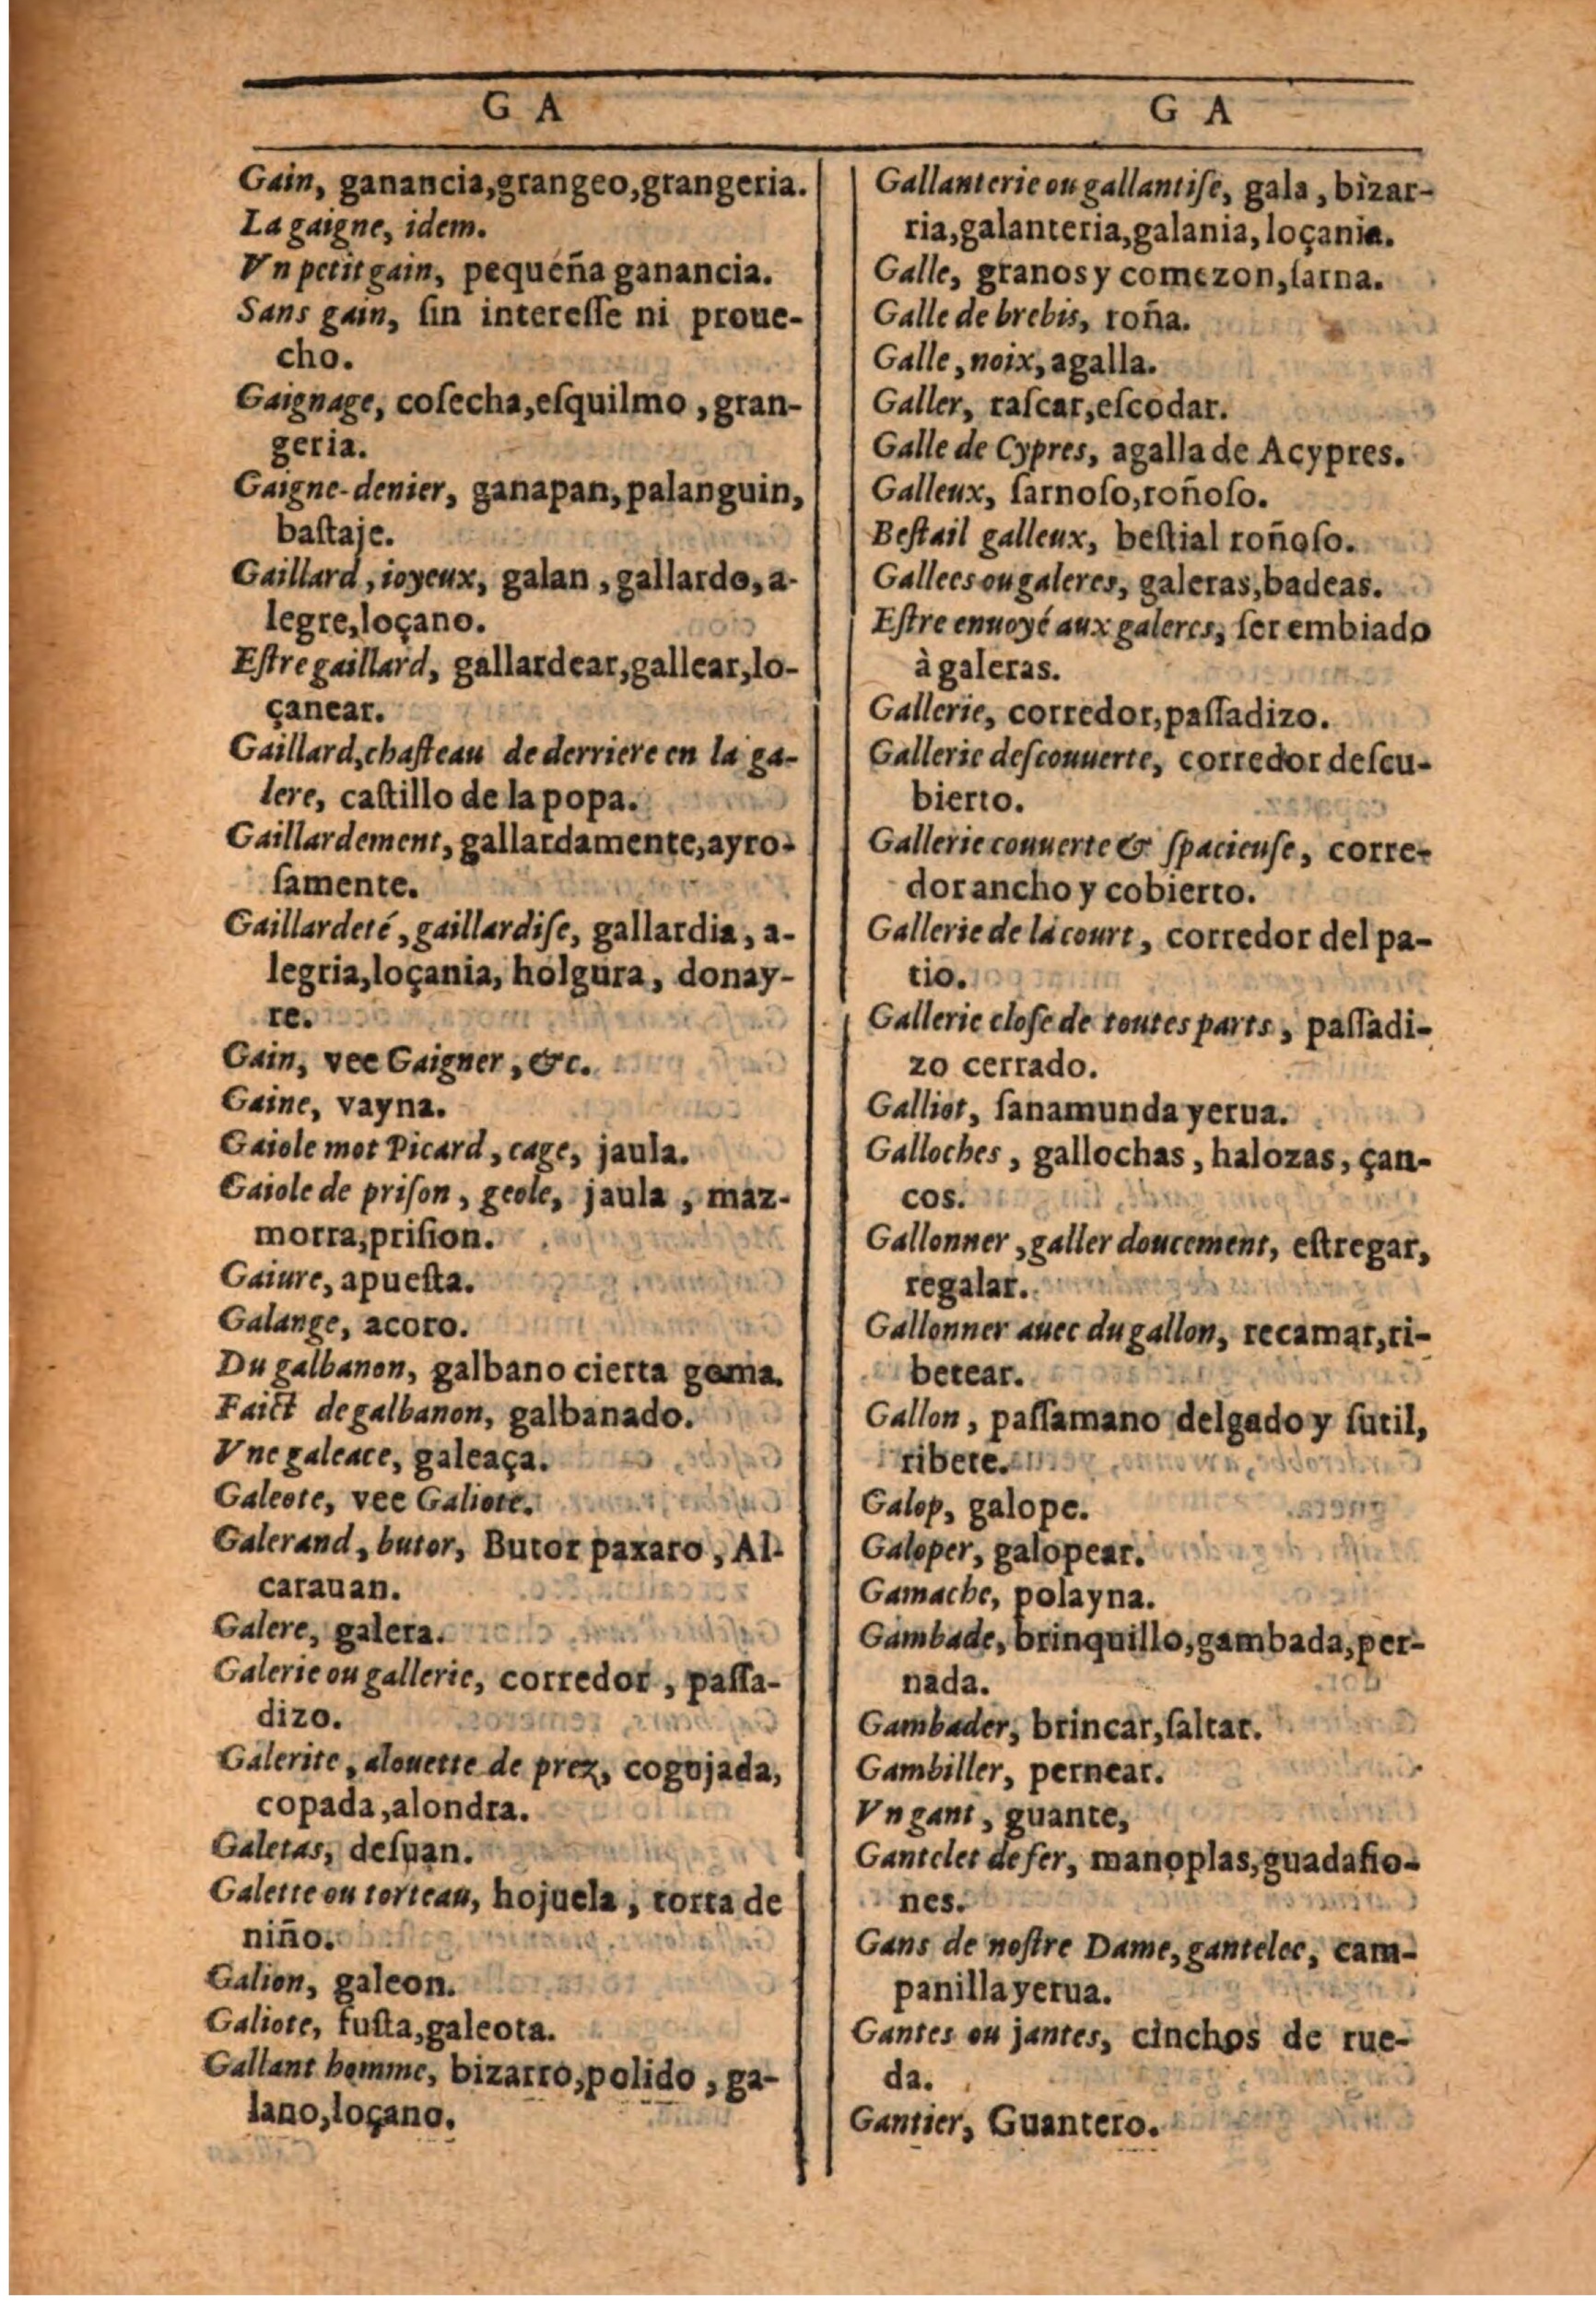 G A
Gain, ganancia,grangeo,grangeria.
La gaigne, idem.
Vn petit gain, pequeña ganancia.
Sans gain, ſin intereſſe ni proue-
cho.
Gaignage, coſecha,eſquilmo, gran-
geria.
Gaigne-denier, ganapan,palanguin,
baſtaje.
Gaillard, ioyeux, galan, gallardo, a-
legre,loçano.
Eſtre gaillard, gallardear,gallear,lo-
çanear.
Gaillard,chaſteau de derriere en la ga-
lere, caſtillo de la popa.
Gaillardement, gallardamente,ayro-
ſamente.
Gaillardeté, gaillardiſe, gallardia, a-
legria,loçania, holgura, donay-
re.
Gain, vee Gaigner, &c.
Gaine, vayna.
Gaiole mot Picard, cage, jaula.
Gaiole de priſon, geole, jaula, maz-
morra,priſion.
Gaiure, apueſta.
Galange, acoro.
Du galbanon, galbano cierta goma.
Faict de galbanon, galbanado.
Vne galeace, galeaça.
Galeote, vee Galiote.
Galerand, butor, Butor paxaro, Al-
carauan.
Galere, galera.
Galerie ou gallerie, corredor, paſſa-
dizo.
Galerite, alouette de prez, cogujada,
copada,alondra.
Galetas, deſuan.
Galette ou torteau, hojuela, torta de
niño.
Galion, galeon.
Galiote, fuſta,galeota.
Gallant homme, bizarro,polido, ga-
lano,loçano.
G A
Gallanterie ou gallantiſe, gala, bizar-
ria,galanteria,galania, loçania.
Galle, granos y comezon,ſarna.
Galle de brebis, roña.
Galle, noix, agalla.
Galler, raſcar,eſcodar.
Galle de Cypres, agalla de Acypres.
Galleux, ſarnoſo,roñoſo.
Beſtail galleux, beſtial roñoſo.
Gallees ou galeres, galeras,badeas.
Eſtre enuoyé aux galeres, ſer embiado
à galeras.
Gallerie, corredor,paſſadizo.
Gallerie deſcouuerte, corredor deſcu-
bierto.
Gallerie couuerte & ſpacieuſe, corre-
dor ancho y cobierto.
Gallerie de la court, corredor del pa-
tio.
Gallerie cloſe de toutes parts, paſſadi-
zo cerrado.
Galliot, ſanamunda yerua.
Galloches, gallochas, halozas, çan-
cos.
Gallonner, galler doucement, eſtregar,
regalar.
Gallonner auec du gallon, recamar,ri-
betear.
Gallon, paſſamano delgado y ſutil,
ribete.
Galop, galope.
Galoper, galopear.
Gamache, polayna.
Gambade, brinquillo,gambada,per-
nada.
Gambader, brincar,ſaltar.
Gambiller, pernear.
Vn gant, guante,
Gantelet de fer, manoplas,guadafio-
nes.
Gans de noſtre Dame, gantelec, cam-
panilla yerua.
Gantes ou jantes, cinchos de rue-
da.
Gantier, Guantero.